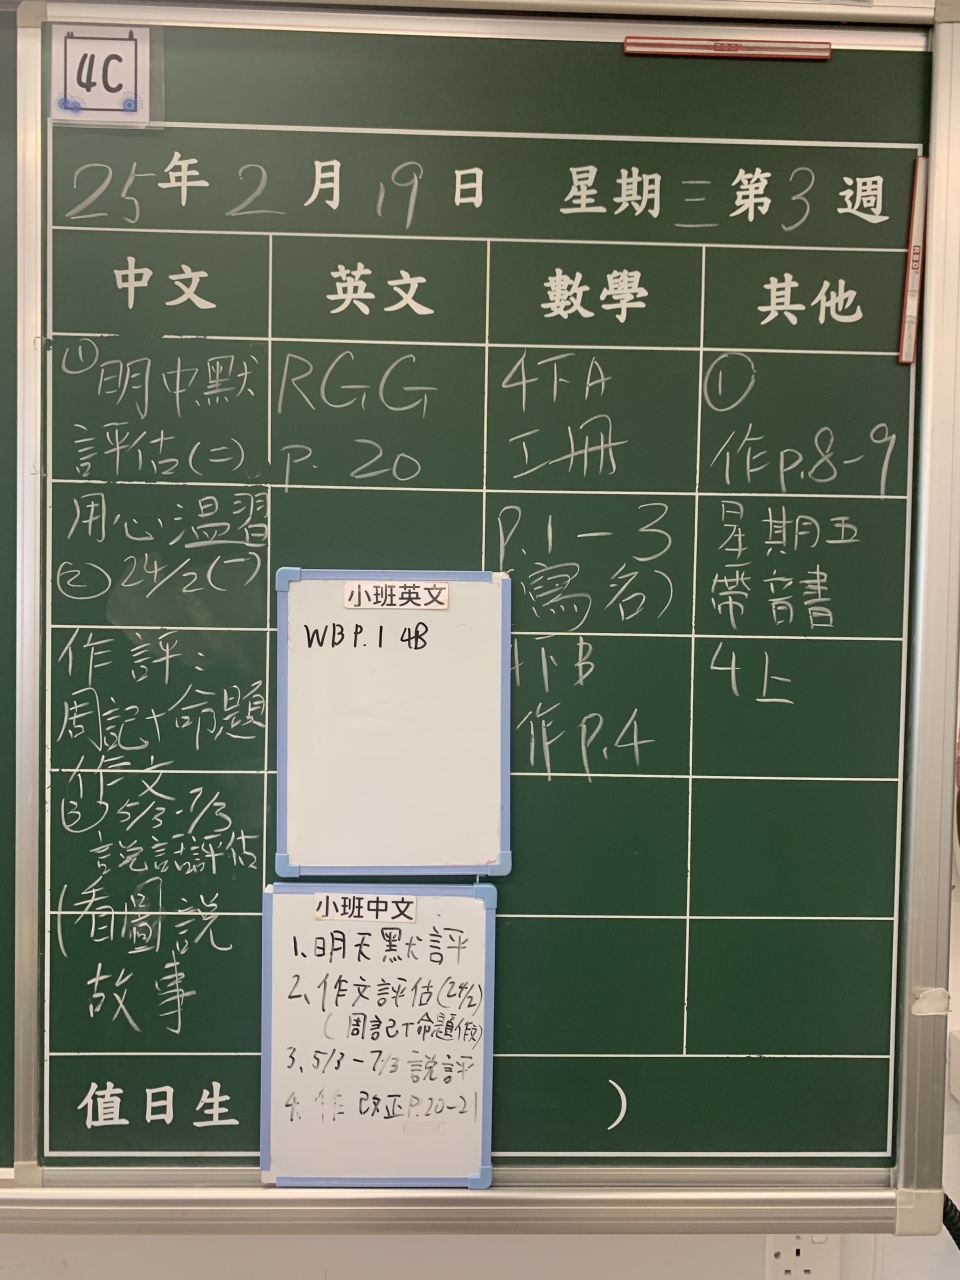 4C
25年2月19日 星期三第3週
中文 英文 數學 其他
①明中默
評估(二)
用心溫習
② 24/2(一)
作評:
周記+命題
作文
③ 5/3-7/3
說話評估
(看圖說
故事
RGG
P. 20
4下A
工冊
P.1-3
(寫名)
4下B
作P.4
①
作P.8-9
星期五
帶音書
4上
小班英文
WB P.1 4B
小班中文
1、明天默評
2、作文評估(24/2)
(周記+命題作文)
3、5/3-7/3 說評
4、作 改正P.20-21
值日生
)